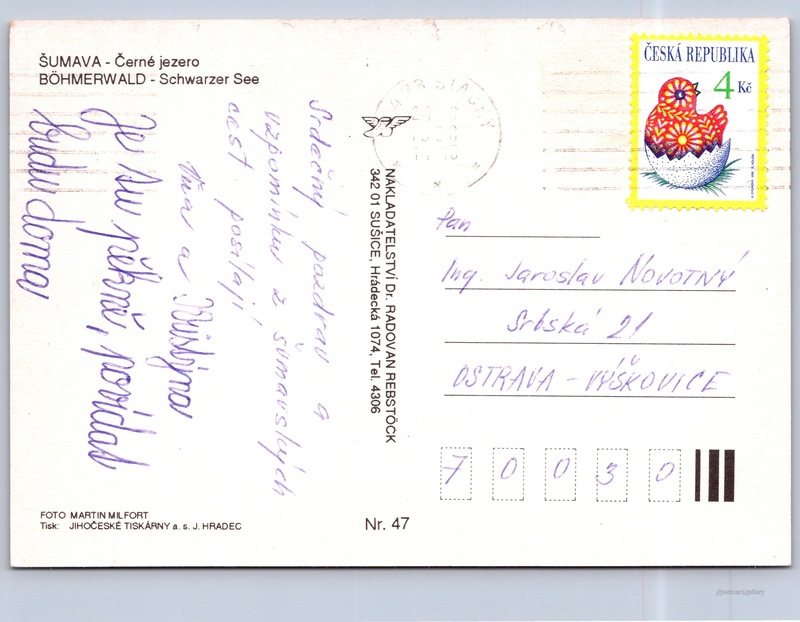 ŠUMAVA - Černé jezero
BÖHMERWALD - Schwarzer See
Srdečný pozdrav a
vzpomínku z šumavských
cest posílají
a
Je tu pěkně, povídat
budu doma
NAKLADATELSTVÍ Dr. RADOVAN REBSTÖCK
342 01 SUŠICE, Hrádecká 1074, Tel. 4306
ČESKÁ REPUBLIKA
4 Kč
Pan
Ing. Jaroslav NOVOTNÝ
Srbská 21
OSTRAVA - VÝŠKOVICE
70030
FOTO MARTIN MILFORT
Tisk: JIHOČESKÉ TISKÁRNY a. s. J. HRADEC
Nr. 47